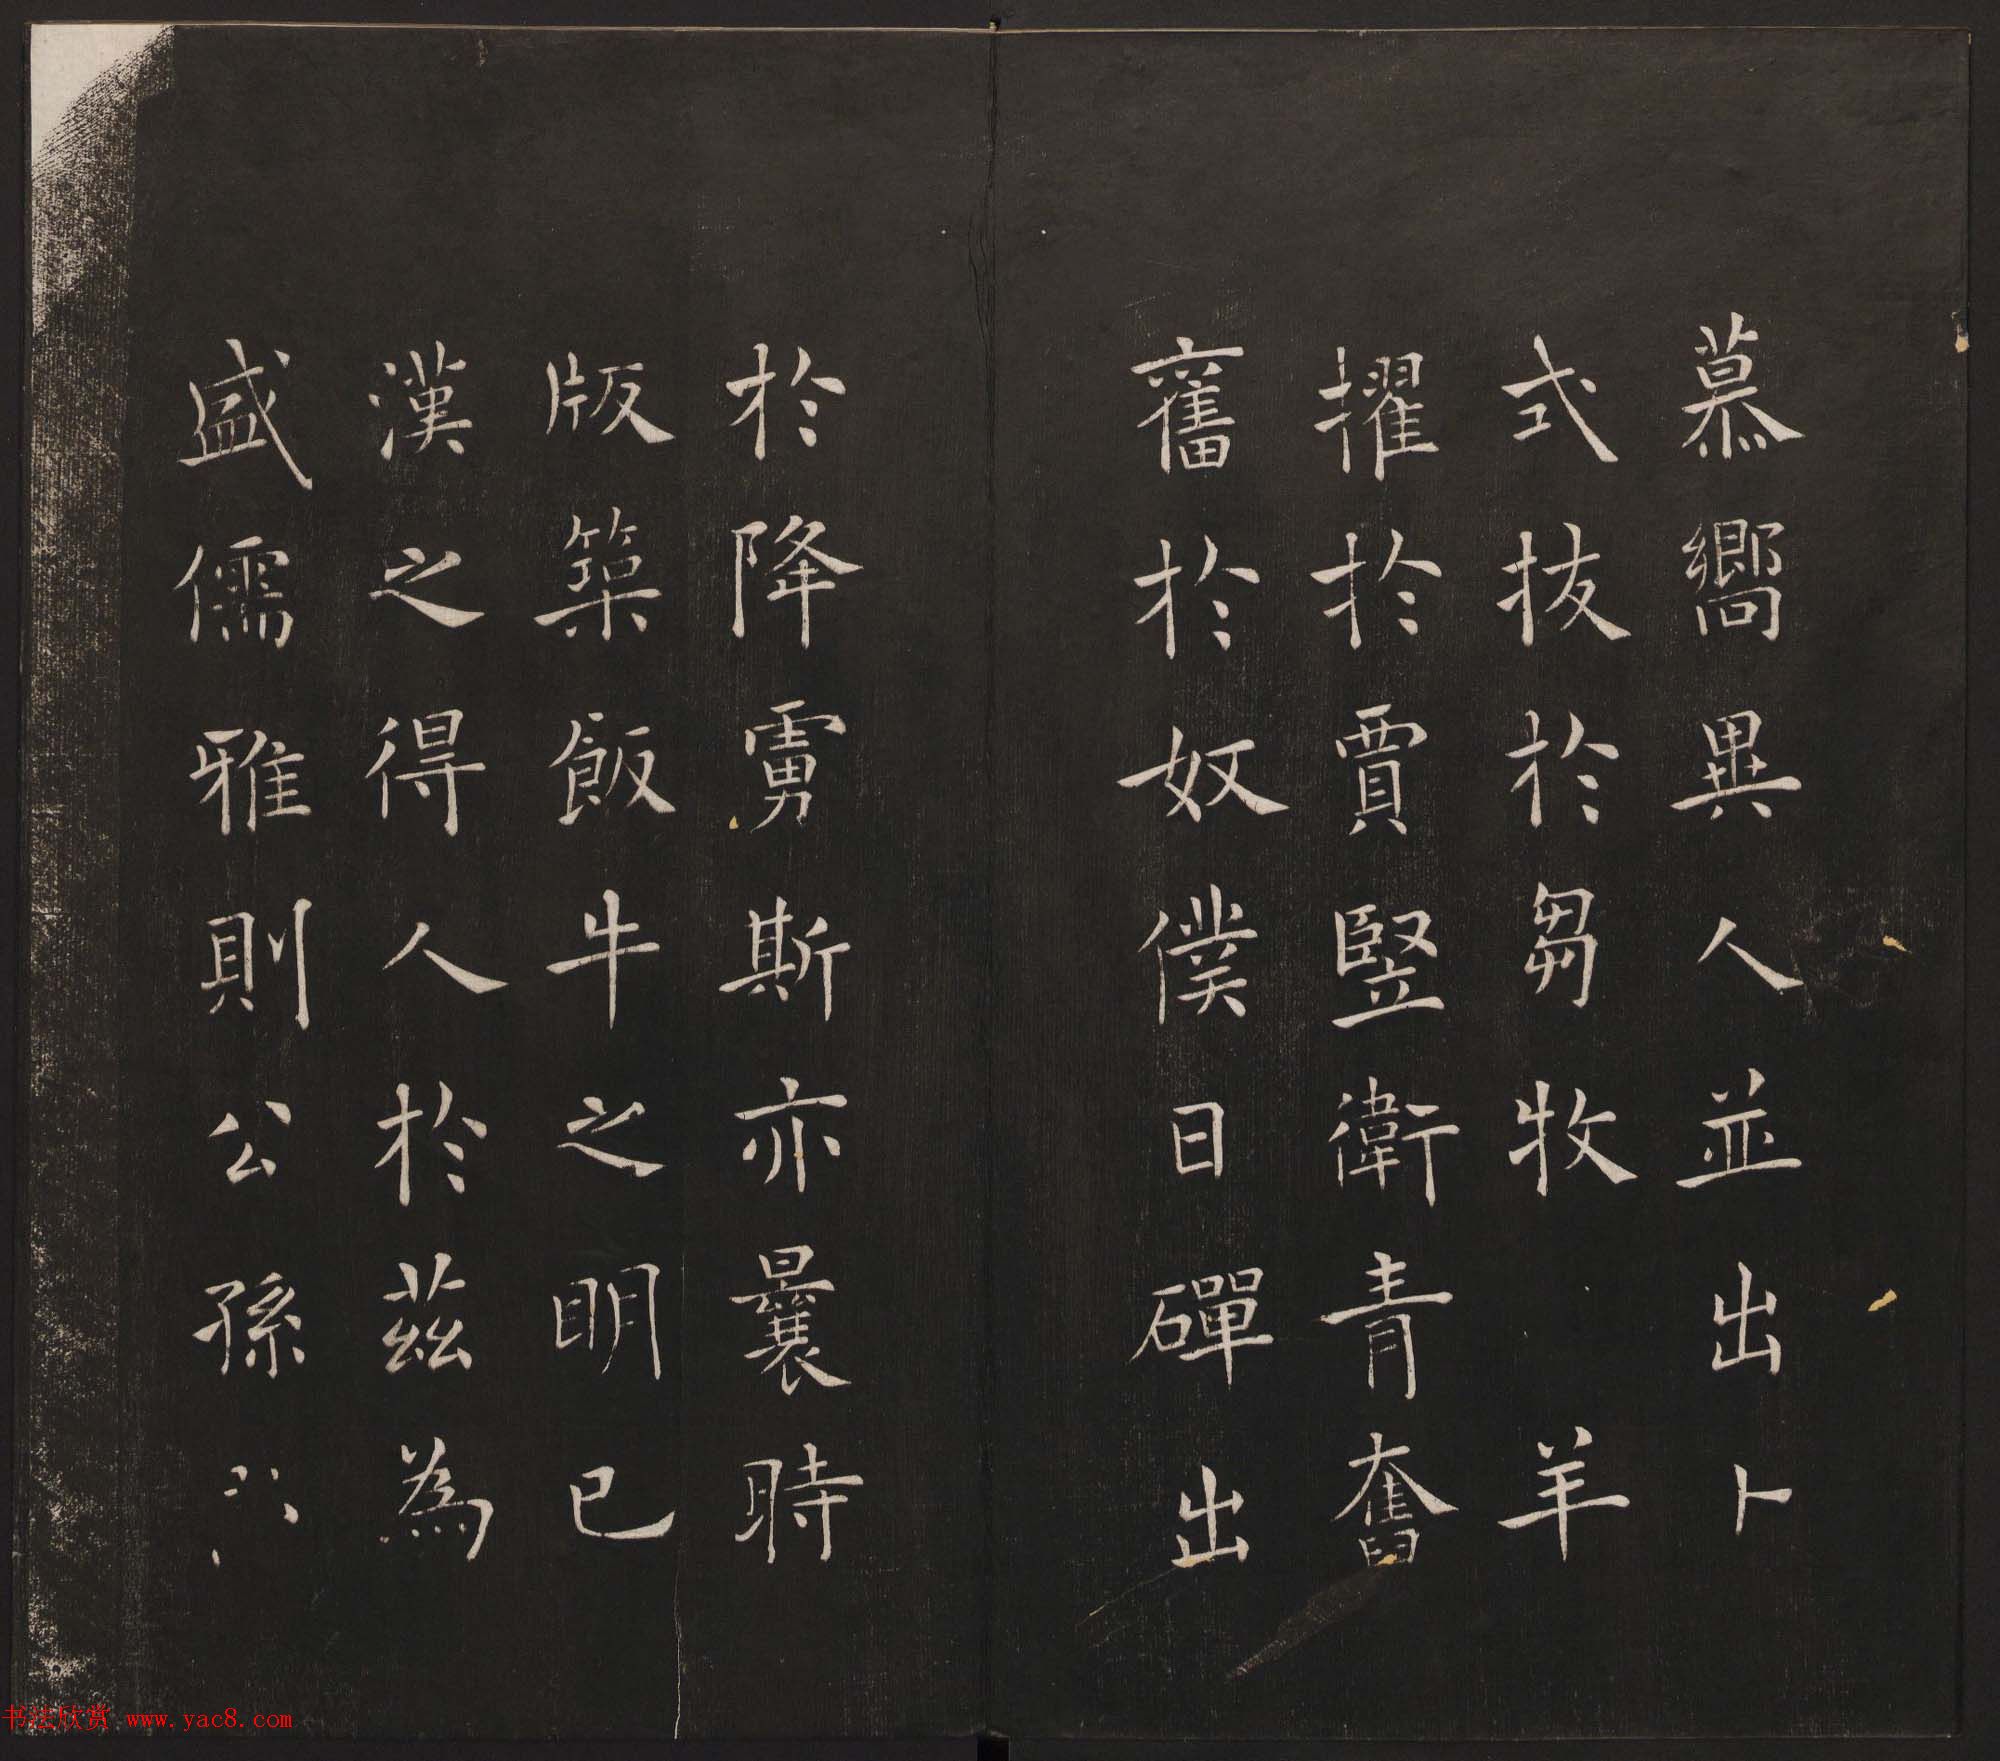 慕嚮異人並出卜
式拔於芻牧羊
擢於賈竪衛青奮
奮於奴僕日磾出
於降虜斯亦曩時
版築飯牛之明已
漢之得人於茲為
盛儒雅則公孫
书法欣赏 www.yac8.com